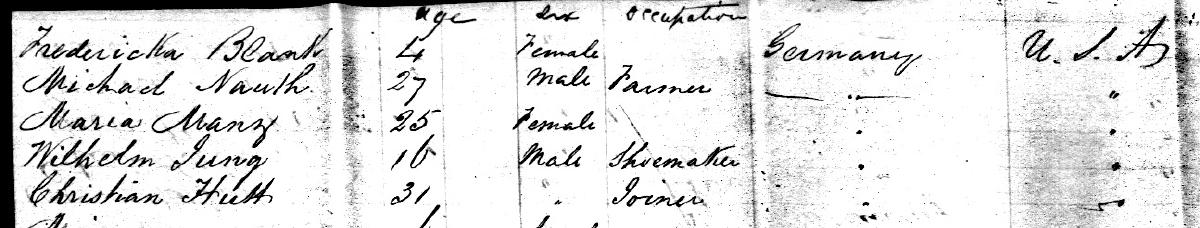 age sex occupation
Fredericka Blank 4 Female Germany U. S. A
Michael Nauth. 27 Male Farmer — " — "
Maria Manz 25 Female " "
Wilhelm Jung 16 Male Shoemaker " "
Christian Hutt 31 " Joiner " "